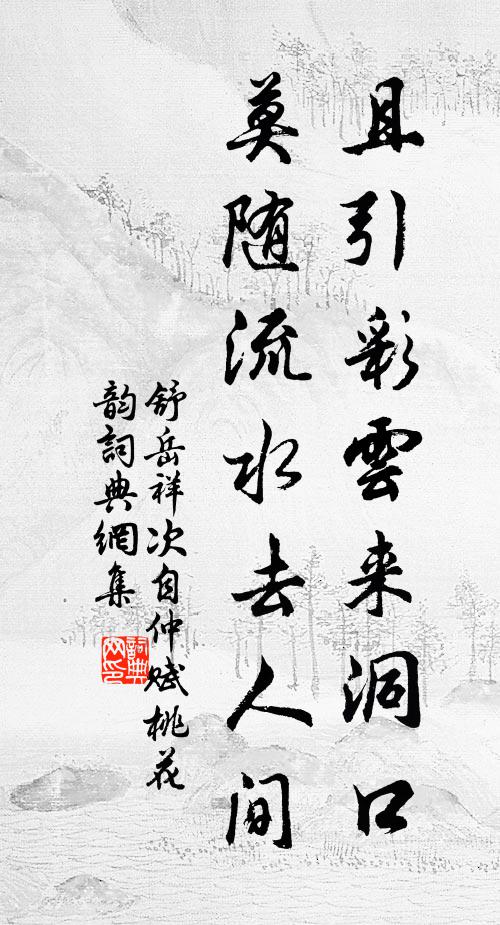 且引彩雲来洞口
莫随流水去人间
舒岳祥次自仲赋桃花
韵詞典網集
詞典网印